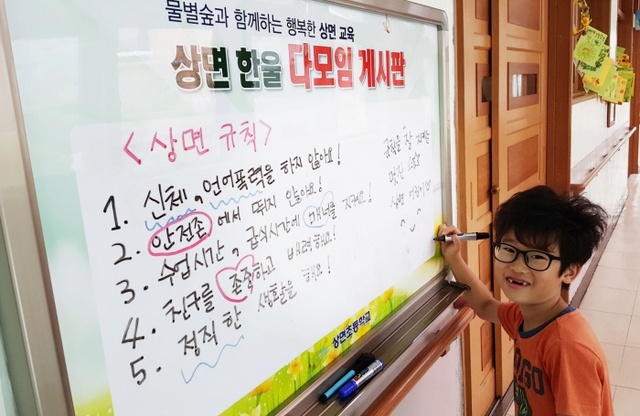 물별숲과 함께하는 행복한 상면 교육
상면 한울 다모임 게시판
<상면 규칙>
1. 신체, 언어폭력을 하지 않아요!
2. 안전존에서 뛰지 않아요!
3. 수업시간, 급식시간에 매너를 지켜요!
4. 친구를 존중하고 배려해요!
5. 정직한 생활을 해요!
상면초등학교